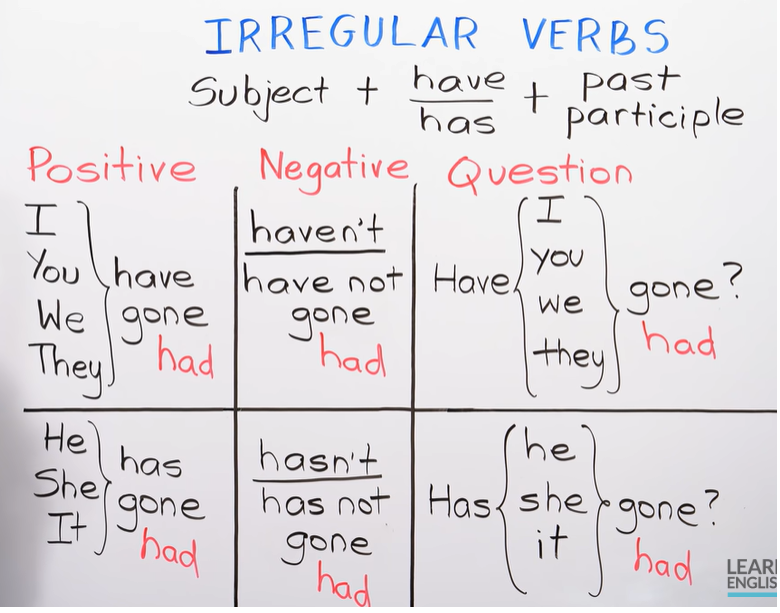 IRREGULAR VERBS
Subject + have/has + past participle
Positive Negative Question
I
You
We
They
have
gone
had
haven't
have not
gone
had
Have
I
you
we
they
gone?
had
He
She
It
has
gone
had
hasn't
has not
gone
had
Has
he
she
it
gone?
had
LEAR
ENGLIS